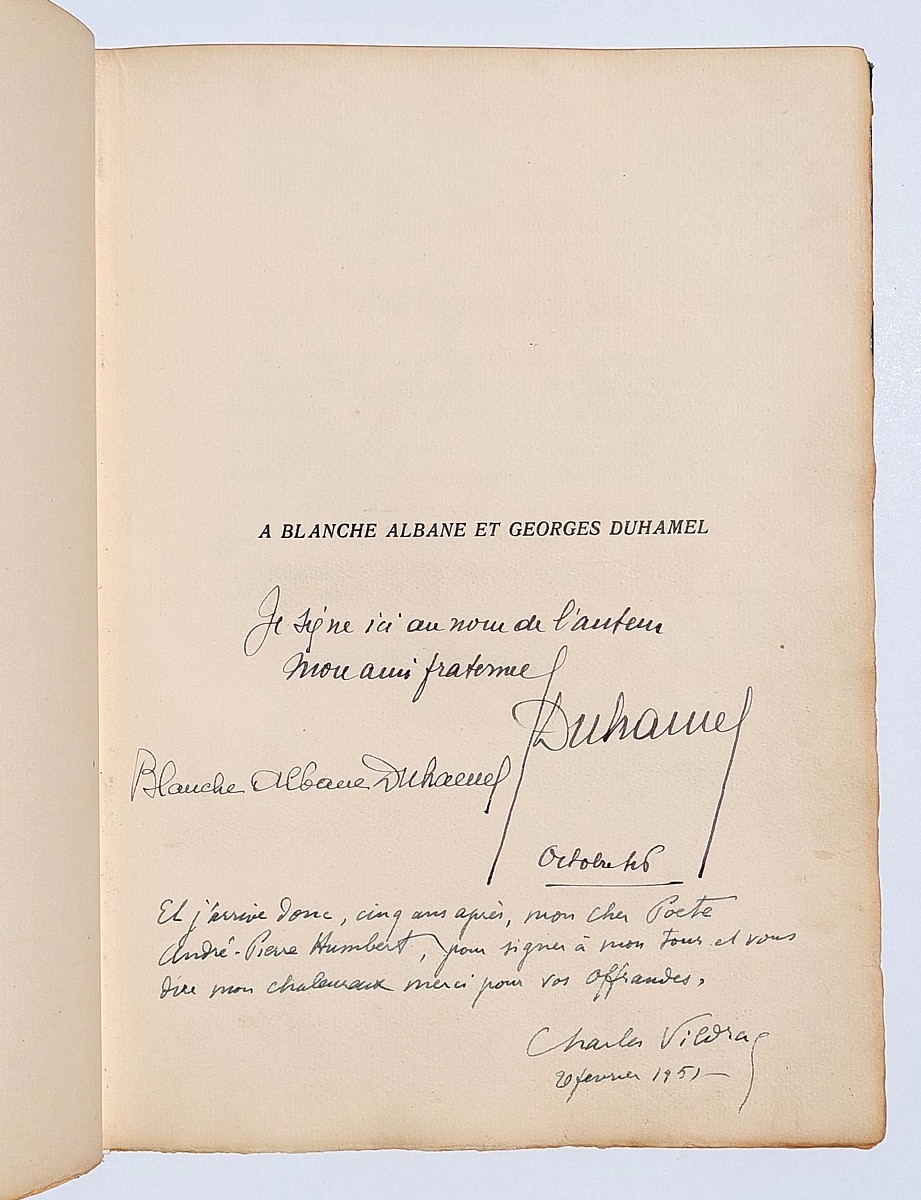 A BLANCHE ALBANE ET GEORGES DUHAMEL
Je signe ici au nom de l'auteur
Mon ami fraternel
Duhamel
Blanche Albane Duhamel
Octobre 46
Et j'arrive donc, cinq ans après, mon cher Poete
André-Pierre Humbert, pour signer à mon tour et vous
dire mon chaleureux merci pour vos offrandes.
Charles Vildrac
20 fevrier 1951